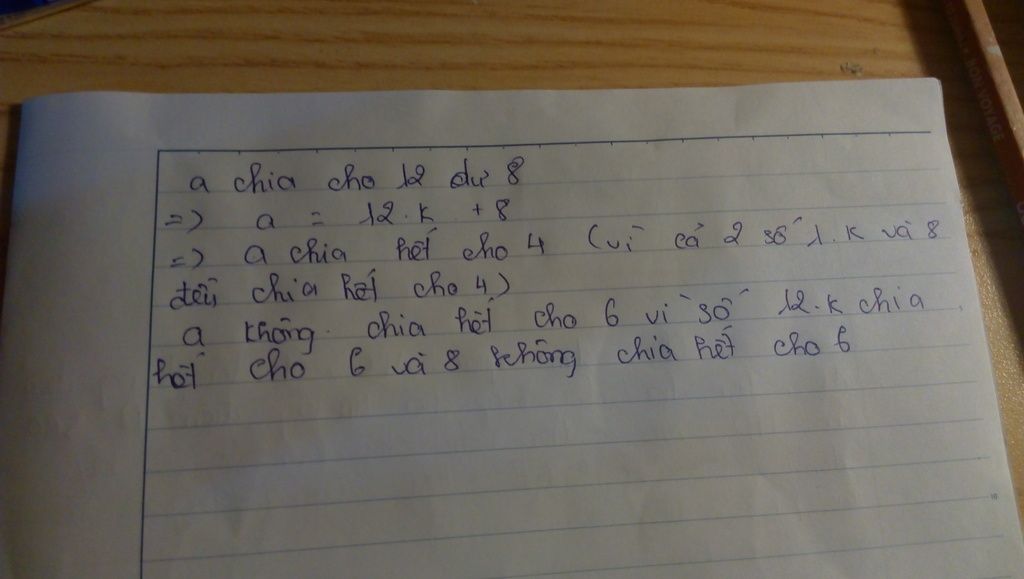 a chia cho 12 dư 8
=> a = 12.k + 8
=> a chia hết cho 4 (vì cả 2 số 1.k và 8
đều chia hết cho 4)
a không chia hết cho 6 vì số 12.k chia
hết cho 6 và 8 không chia hết cho 6
BON VOYAGE